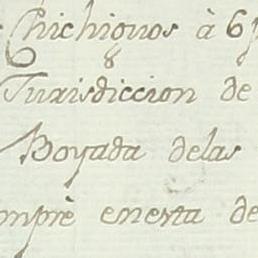 Chichiguos à 6p
Jurisdiccion de
Boyada delas
ompré enesta de